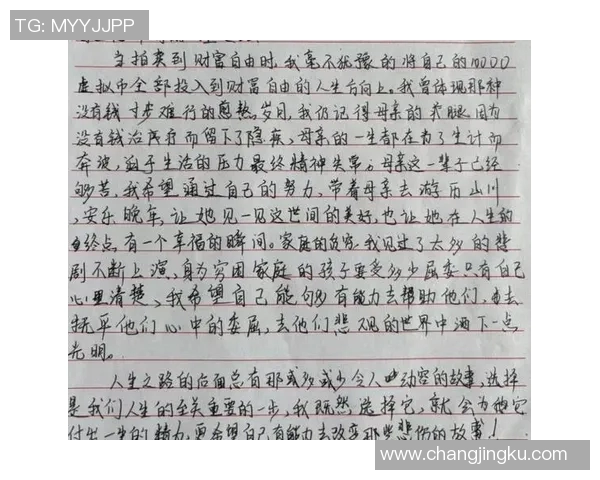 TG: MYYJJPP
当拍卖到财富自由时,我毫不犹豫的将自己的10000
虚拟币全部投入到财富自由的人生方向上。我曾体现那种
没有钱寸步难行的 岁月,我仍记得母亲的 腿因为
没有钱治 疗而留下了隐疾、母亲的一生都在为了生计而
奔波,迫于生活的压力最终精神失常。母亲这一辈子已经
够苦,我希望通过自己的努力,带着母亲去游历山川
,安乐晚年,让她见一见这世间的美好,也让她在人生的
终点有一个幸福的瞬间。家庭的贫穷,我见过了太多的悲
剧不断上演,身为穷困家庭的孩子要受多少屈委只有自己
心里清楚、我希望自己能够有能力去帮助他们,去
抚平他们心中的委屈,去他们悲观的世界中洒下一点
光明。
人生之路的后面总有那或多或少令人动容的故事,选择
是我们人生的至关重要的一步,我既然选择它,就会为他
付出一生的精力,更希望自己有能力去改变那些悲伤的故事!
www.changjingku.com